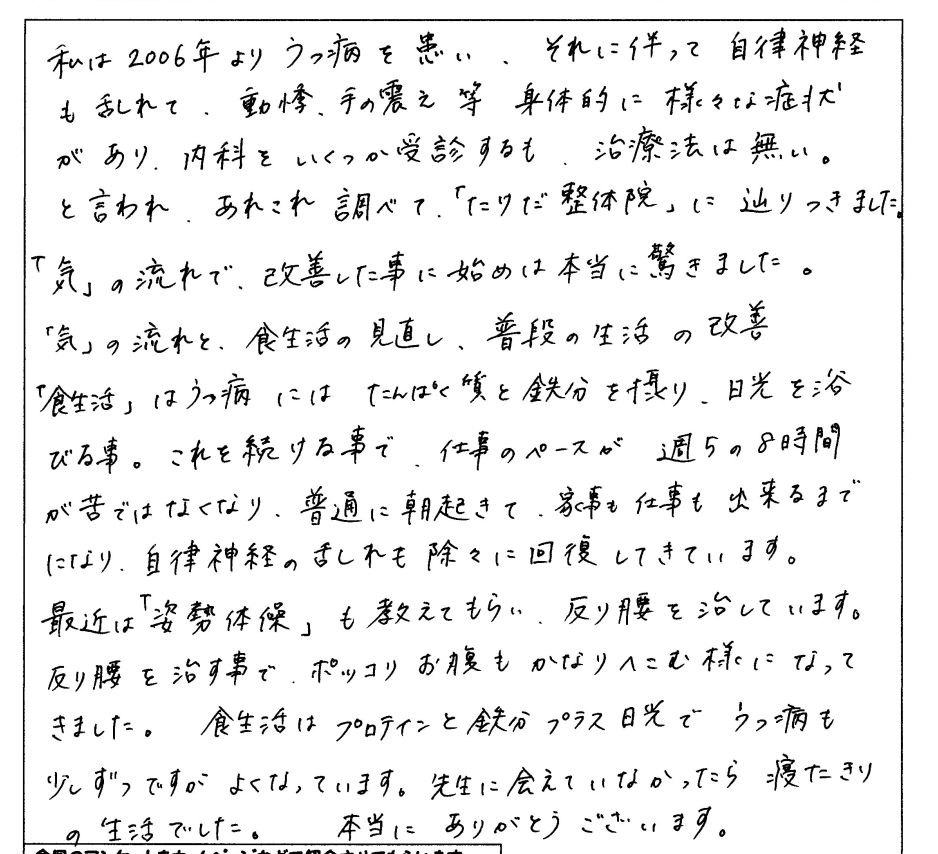 私は2006年よりうつ病を患い、それに伴って自律神経
も乱れて、動悸、手の震え等身体的に様々な症状
があり、内科をいくつか受診するも、治療法は無い。
と言われ、あれこれ調べて、「たけだ整体院」に辿りつきました。
「気」の流れで、改善した事に始めは本当に驚きました。
「気」の流れと、食生活の見直し、普段の生活の改善
「食生活」はうつ病にはたんぱく質と鉄分を摂り、日光を浴
びる事。これを続ける事で、仕事のペースが週5の8時間
が苦ではなくなり、普通に朝起きて、家事も仕事も出来るまで
になり、自律神経の乱れも除々に回復してきています。
最近は「姿勢体操」も教えてもらい、反り腰を治しています。
反り腰を治す事で、ポッコリお腹もかなりへこむ様になって
きました。食生活はプロテインと鉄分プラス日光でうつ病も
少しずつですがよくなっています。先生に会えていなかったら寝たきり
の生活でした。本当にありがとうございます。